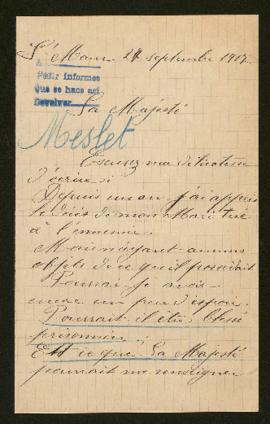 Le Mans 24 septembre 1917
Pedir informes
Que se hace así
Devolver
Sa Majesté
Meslet
Excusez ma
d'écrire si
Depuis un an j'ai appris
le de mon Mari tué
à l'ennemi.
Mais n'ayant aucuns
objets de ce qu'il possédait
Pourrai-je avoir
encore un peu d'espoir.
Pourrait-il être blessé
prisonnier ;
Est ce que Sa Majesté
pourrait me renseigner